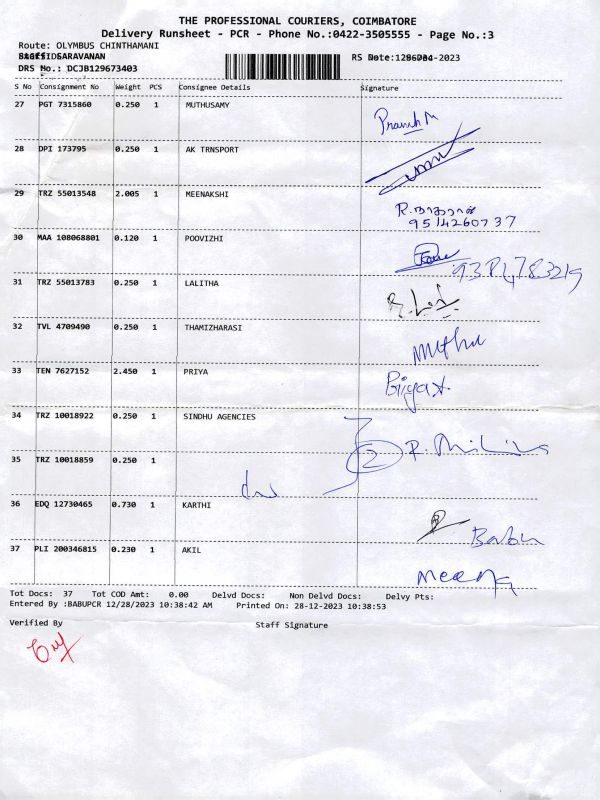 THE PROFESSIONAL COURIERS, COIMBATORE
Delivery Runsheet - PCR - Phone No.:0422-3505555 - Page No.:3
Route: OLYMBUS CHINTHAMANI
SARAVANAN RS Date: -2023
DRS No.: DCJB129673403
S No Consignment No Weight PCS Consignee Details Signature
27 PGT 7315860 0.250 1 MUTHUSAMY
28 DPI 173795 0.250 1 AK TRNSPORT
29 TRZ 55013548 2.005 1 MEENAKSHI R.
9514260737
30 MAA 108068801 0.120 1 POOVIZHI
31 TRZ 55013783 0.250 1 LALITHA
32 TVL 4709490 0.250 1 THAMIZHARASI Muthu
33 TEN 7627152 2.450 1 PRIYA
34 TRZ 10018922 0.250 1 SINDHU AGENCIES
2 R.
35 TRZ 10018859 0.250 1
36 EDQ 12730465 0.730 1 KARTHI Babu
37 PLI 200346815 0.230 1 AKIL Meena
Tot Docs: 37 Tot COD Amt: 0.00 Delvd Docs: Non Delvd Docs: Delvy Pts:
Entered By :BABUPCR 12/28/2023 10:38:42 AM Printed On: 28-12-2023 10:38:53
Verified By Staff Signature